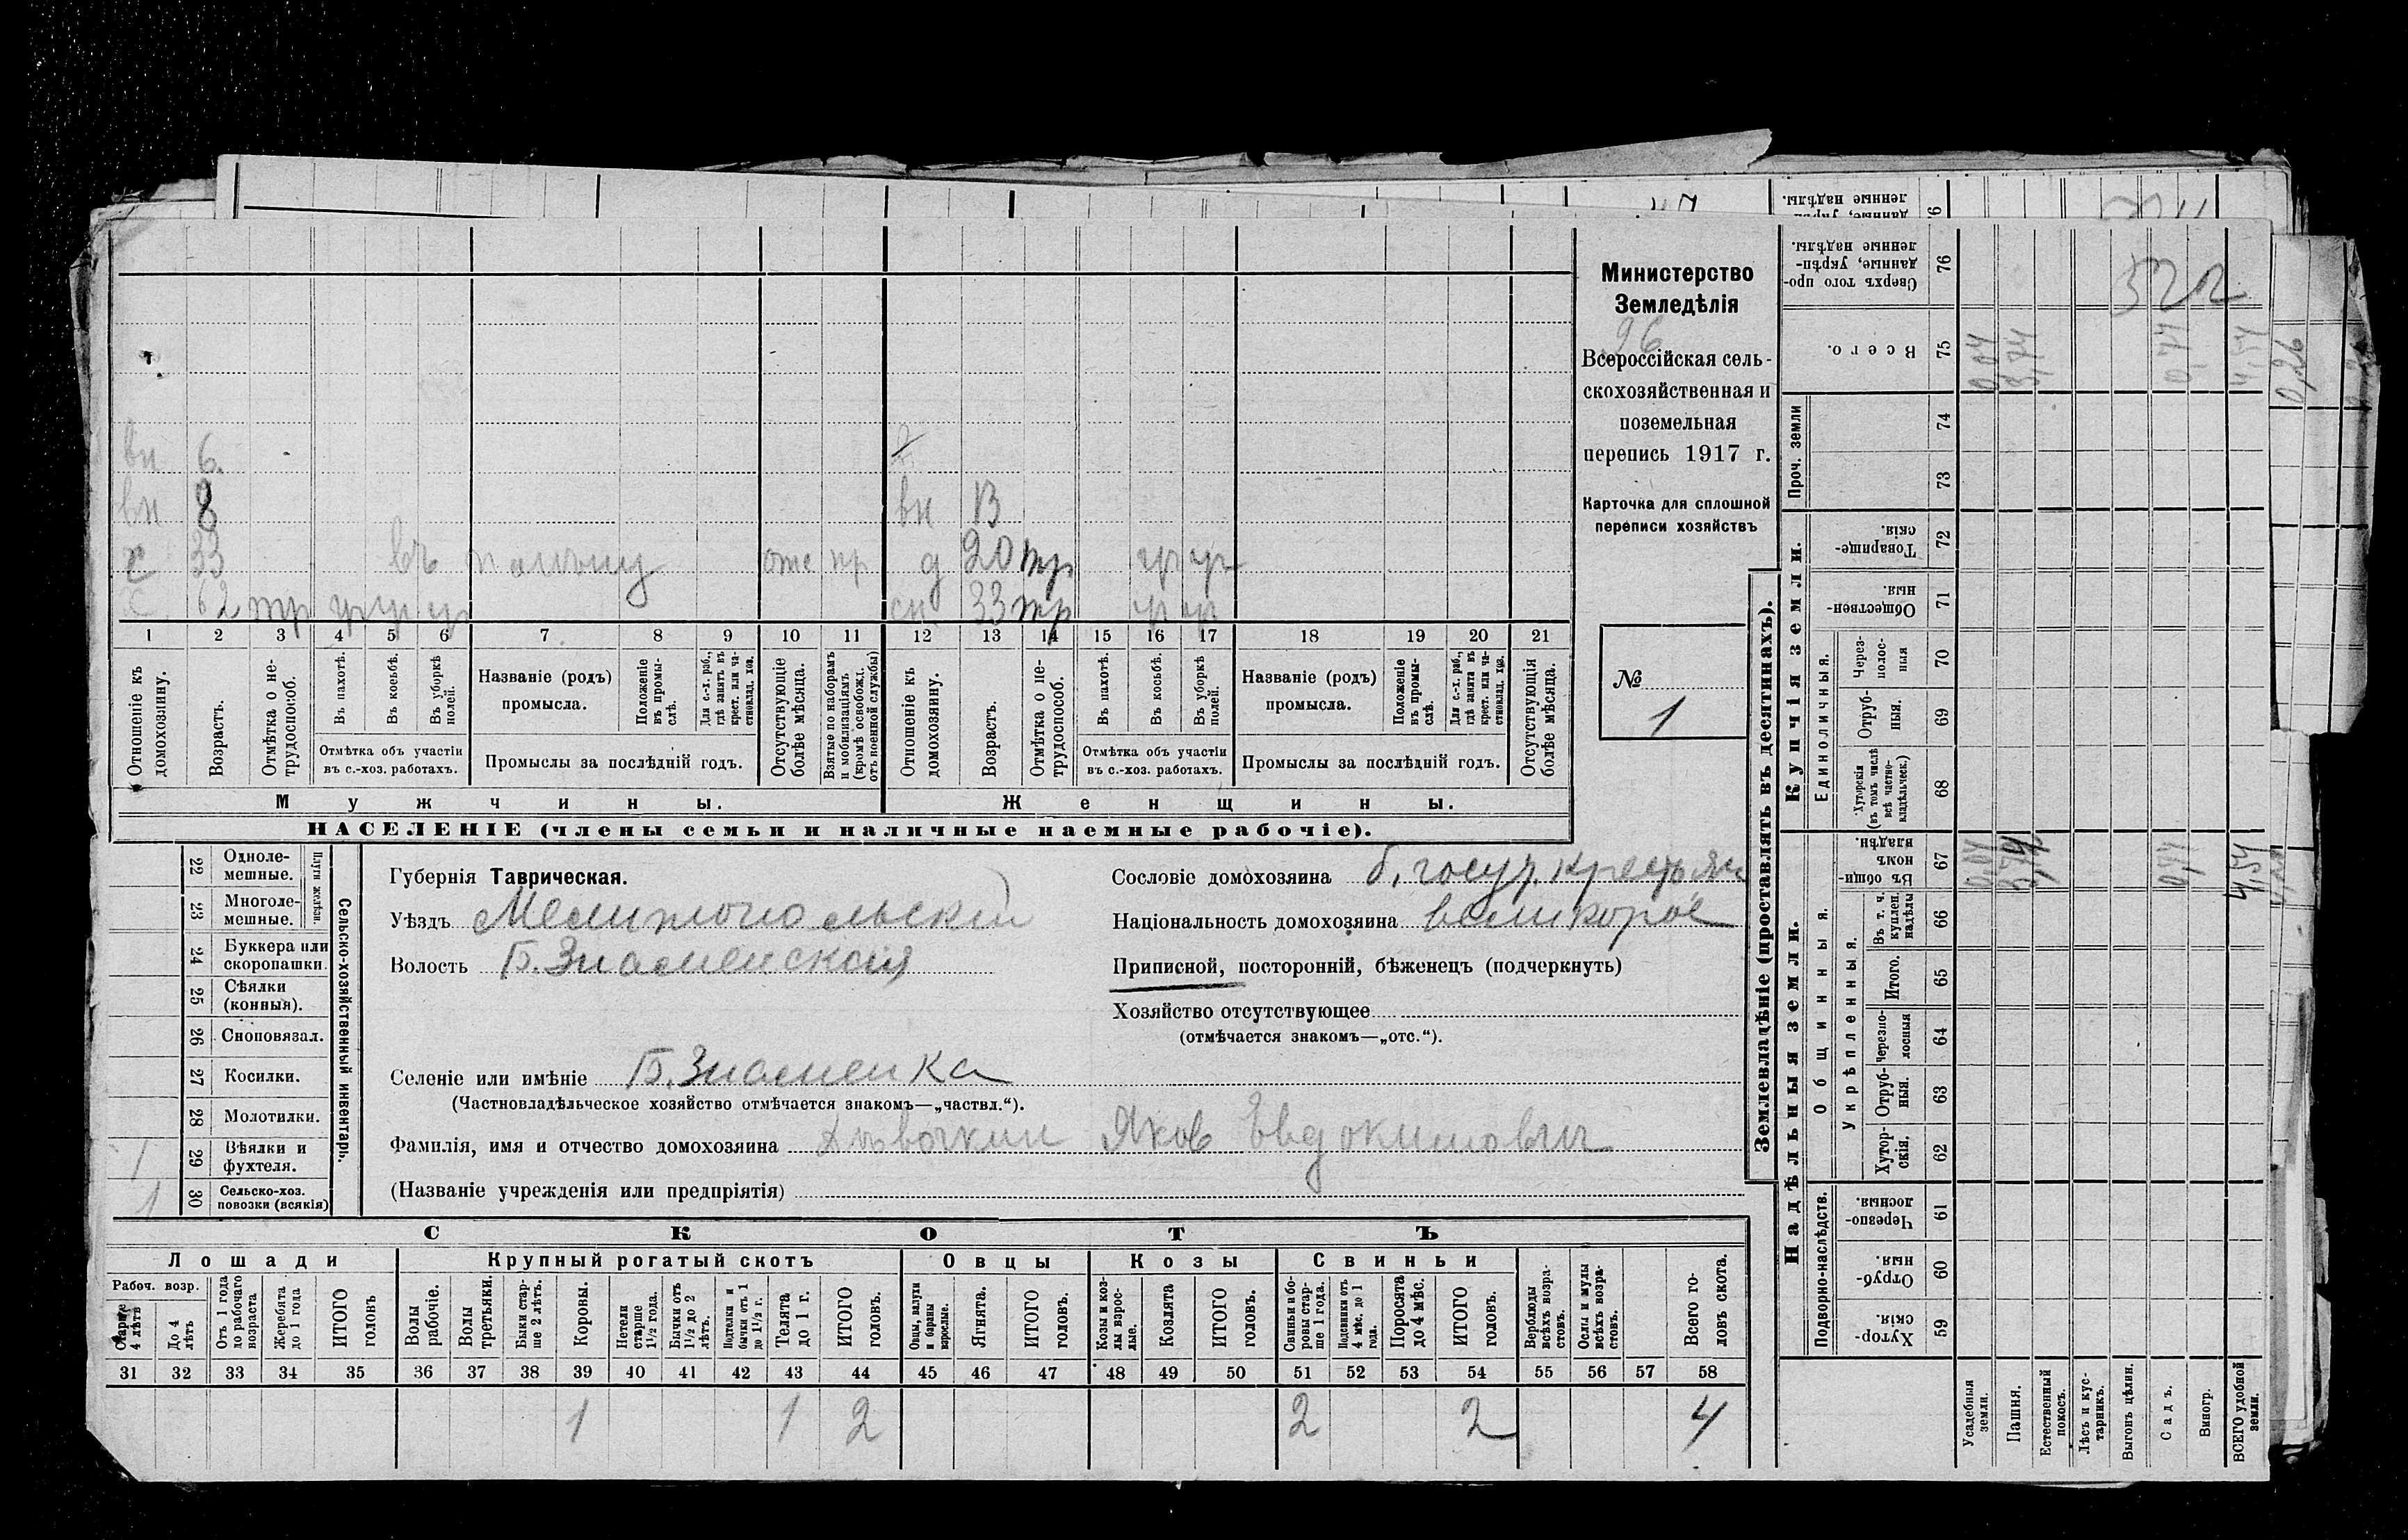 Министерство
Земледѣлія
96
Всероссійская сель-
скохозяйственная и
поземельная
перепись 1917 г.
Карточка для сплошной
переписи хозяйствъ
№
1
вн 6.
вн 8 вн 13
с 33 въ отс пр д 20 тр
х 62 тр сн 33 тр
1 2 3 4 5 6 7 8 9 10 11 12 13 14 15 16 17 18 19 20 21
Отношеніе къ домохозяину.
Возрастъ.
Отмѣтка о не-трудоспособ.
Въ пахотѣ.
Въ косьбѣ.
Въ уборкѣ полей.
Отмѣтка объ участіи
въ с.-хоз. работахъ.
Названіе (родъ)
промысла.
Положеніе въ промы-слѣ.
Для с.-х. раб., гдѣ занятъ въ крест. или ча-стновлад. хоз.
Промыслы за послѣдній годъ.
Отсутствующіе болѣе мѣсяца.
Взятые по наборамъ и мобилизаціямъ (кромѣ освобожд. отъ военной службы)
Отношеніе къ домохозяину.
Возрастъ.
Отмѣтка о не-трудоспособ.
Въ пахотѣ.
Въ косьбѣ.
Въ уборкѣ полей.
Отмѣтка объ участіи
въ с.-хоз. работахъ.
Названіе (родъ)
промысла.
Положеніе въ промы-слѣ.
Для с.-х. раб., гдѣ занята въ крест. или ча-стновлад. хоз.
Промыслы за послѣдній годъ.
Отсутствующія болѣе мѣсяца.
Мужчины. Женщины.
НАСЕЛЕНІЕ (члены семьи и наличные наемные рабочіе).
Сельско-хозяйственный инвентарь.
Плуги желѣзн.
22 Одноле-мешные.
23 Многоле-мешные.
24 Буккера или скоропашки.
25 Сѣялки (конныя).
26 Сноповязал.
27 Косилки.
28 Молотилки.
1 29 Вѣялки и фухтеля.
1 30 Сельско-хоз. повозки (всякія)
Губернія Таврическая.
Уѣздъ Мелитопольскій
Волость Б. Знаменская
Селеніе или имѣніе Б. Знаменка
(Частновладѣльческое хозяйство отмѣчается знакомъ—„частвл.“).
Фамилія, имя и отчество домохозяина Яков Евдокимович
(Названіе учрежденія или предпріятія)
Сословіе домохозяина б. госуд. крестьян
Національность домохозяина великорос
Приписной, посторонній, бѣженецъ (подчеркнуть)
Хозяйство отсутствующее
(отмѣчается знакомъ—„отс.“).
СКОТЪ
Лошади Крупный рогатый скотъ Овцы Козы Свиньи
Рабоч. возр.
Старше 4 лѣтъ
До 4 лѣтъ
Отъ 1 года до рабочаго возраста
Жеребята до 1 года
ИТОГО головъ
Волы рабочіе.
Волы третьяки.
Быки стар-ше 2 лѣтъ.
Коровы.
Нетели старше 1½ года.
Бычки отъ 1½ до 2 лѣтъ.
Подтелки и бычки отъ 1 до 1½ г.
Телята до 1 г.
ИТОГО головъ.
Овцы, валухи и бараны взрослые.
Ягнята.
ИТОГО головъ.
Козы и коз-лы взрос-лые.
Козлята
ИТОГО головъ.
Свиньи и бо-ровы стар-ше 1 года.
Подсвинки отъ 4 мѣс. до 1 года.
Поросята до 4 мѣс.
ИТОГО головъ.
Верблюды всѣхъ возра-стовъ.
Ослы и мулы всѣхъ возра-стовъ.
Всего го-ловъ скота.
31 32 33 34 35 36 37 38 39 40 41 42 43 44 45 46 47 48 49 50 51 52 53 54 55 56 57 58
1 1 2 2 2 4
Землевладѣніе (проставлять въ десятинахъ).
Надѣльныя земли. Купчія земли. Проч. земли
Подворно-наслѣдств.
Общинныя.
Укрѣпленныя.
Единоличныя.
59 Хутор-скія.
60 Отруб-ныя.
61 Черезпо-лосныя.
62 Хутор-скія.
63 Отруб-ныя.
64 Черезпо-лосныя
65 Итого.
66 Въ т. ч. куплен. надѣлы
67 Въ общин-номъ владѣн.
68 Хуторскія (въ томъ числѣ всѣ частно-владѣльческ.)
69 Отруб-ныя.
70 Через-полос-ныя
71 Обществен-ныя.
72 Товарище-скія.
73
74
75 Всего.
76 Сверхъ того про-данные, укрѣп-ленные надѣлы.
Усадебныя земли.
Пашня.
Естественный покосъ.
Лѣсъ и кус-тарникъ.
Выгонъ цѣлин.
Садъ.
Виногр.
ВСЕГО удобной земли.
0,04 3,74 4,54
0,04 3,74 0,74 4,54
522
0,26